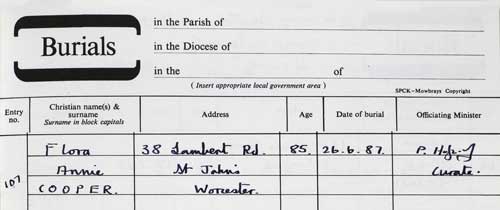 Burials
in the Parish of
in the Diocese of
in the of
( Insert appropriate local government area )
SPCK-Mowbrays Copyright
Entry no. Christian name(s) & surname Surname in block capitals Address Age Date of burial Officiating Minister
107 Flora 38 Lambert Rd. 85. 26.6.87. P.
Annie St John's Curate.
COOPER. Worcester.